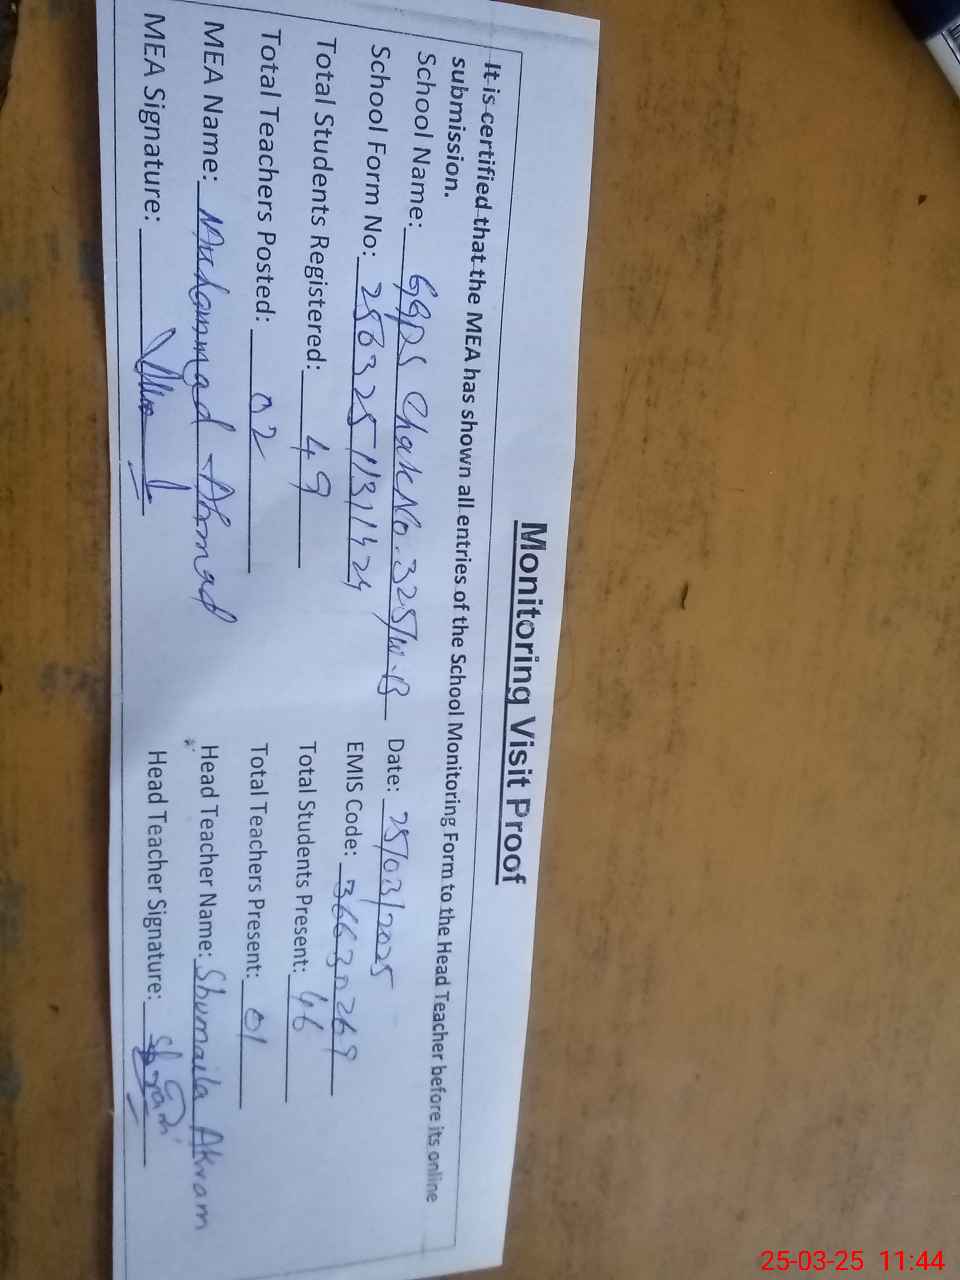 Monitoring Visit Proof
It is certified that the MEA has shown all entries of the School Monitoring Form to the Head Teacher before its online
submission.
School Name: GGPS Chak No. 325/W.B Date: 25/03/2025
School Form No: 2563251131424 EMIS Code: 36630269
Total Students Registered: 49 Total Students Present: 46
Total Teachers Posted: 02 Total Teachers Present: 01
MEA Name: Muhammad Ahmad Head Teacher Name: Shumaila Akram
MEA Signature: Head Teacher Signature:
25-03-25 11:44